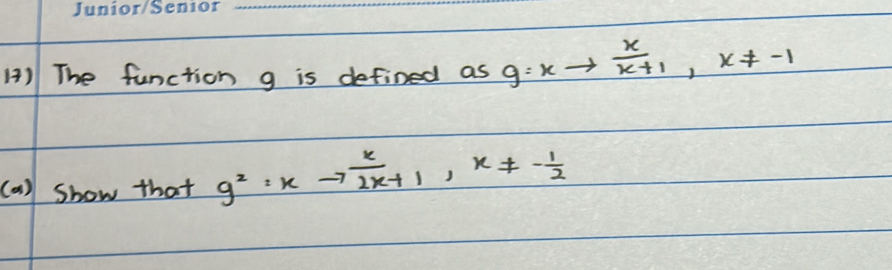 Junior/Senior
17) The function g is defined as g : x → x/(x+1) , x ≠ -1
(a) Show that g² : x → x/(2x+1) , x ≠ -1/2